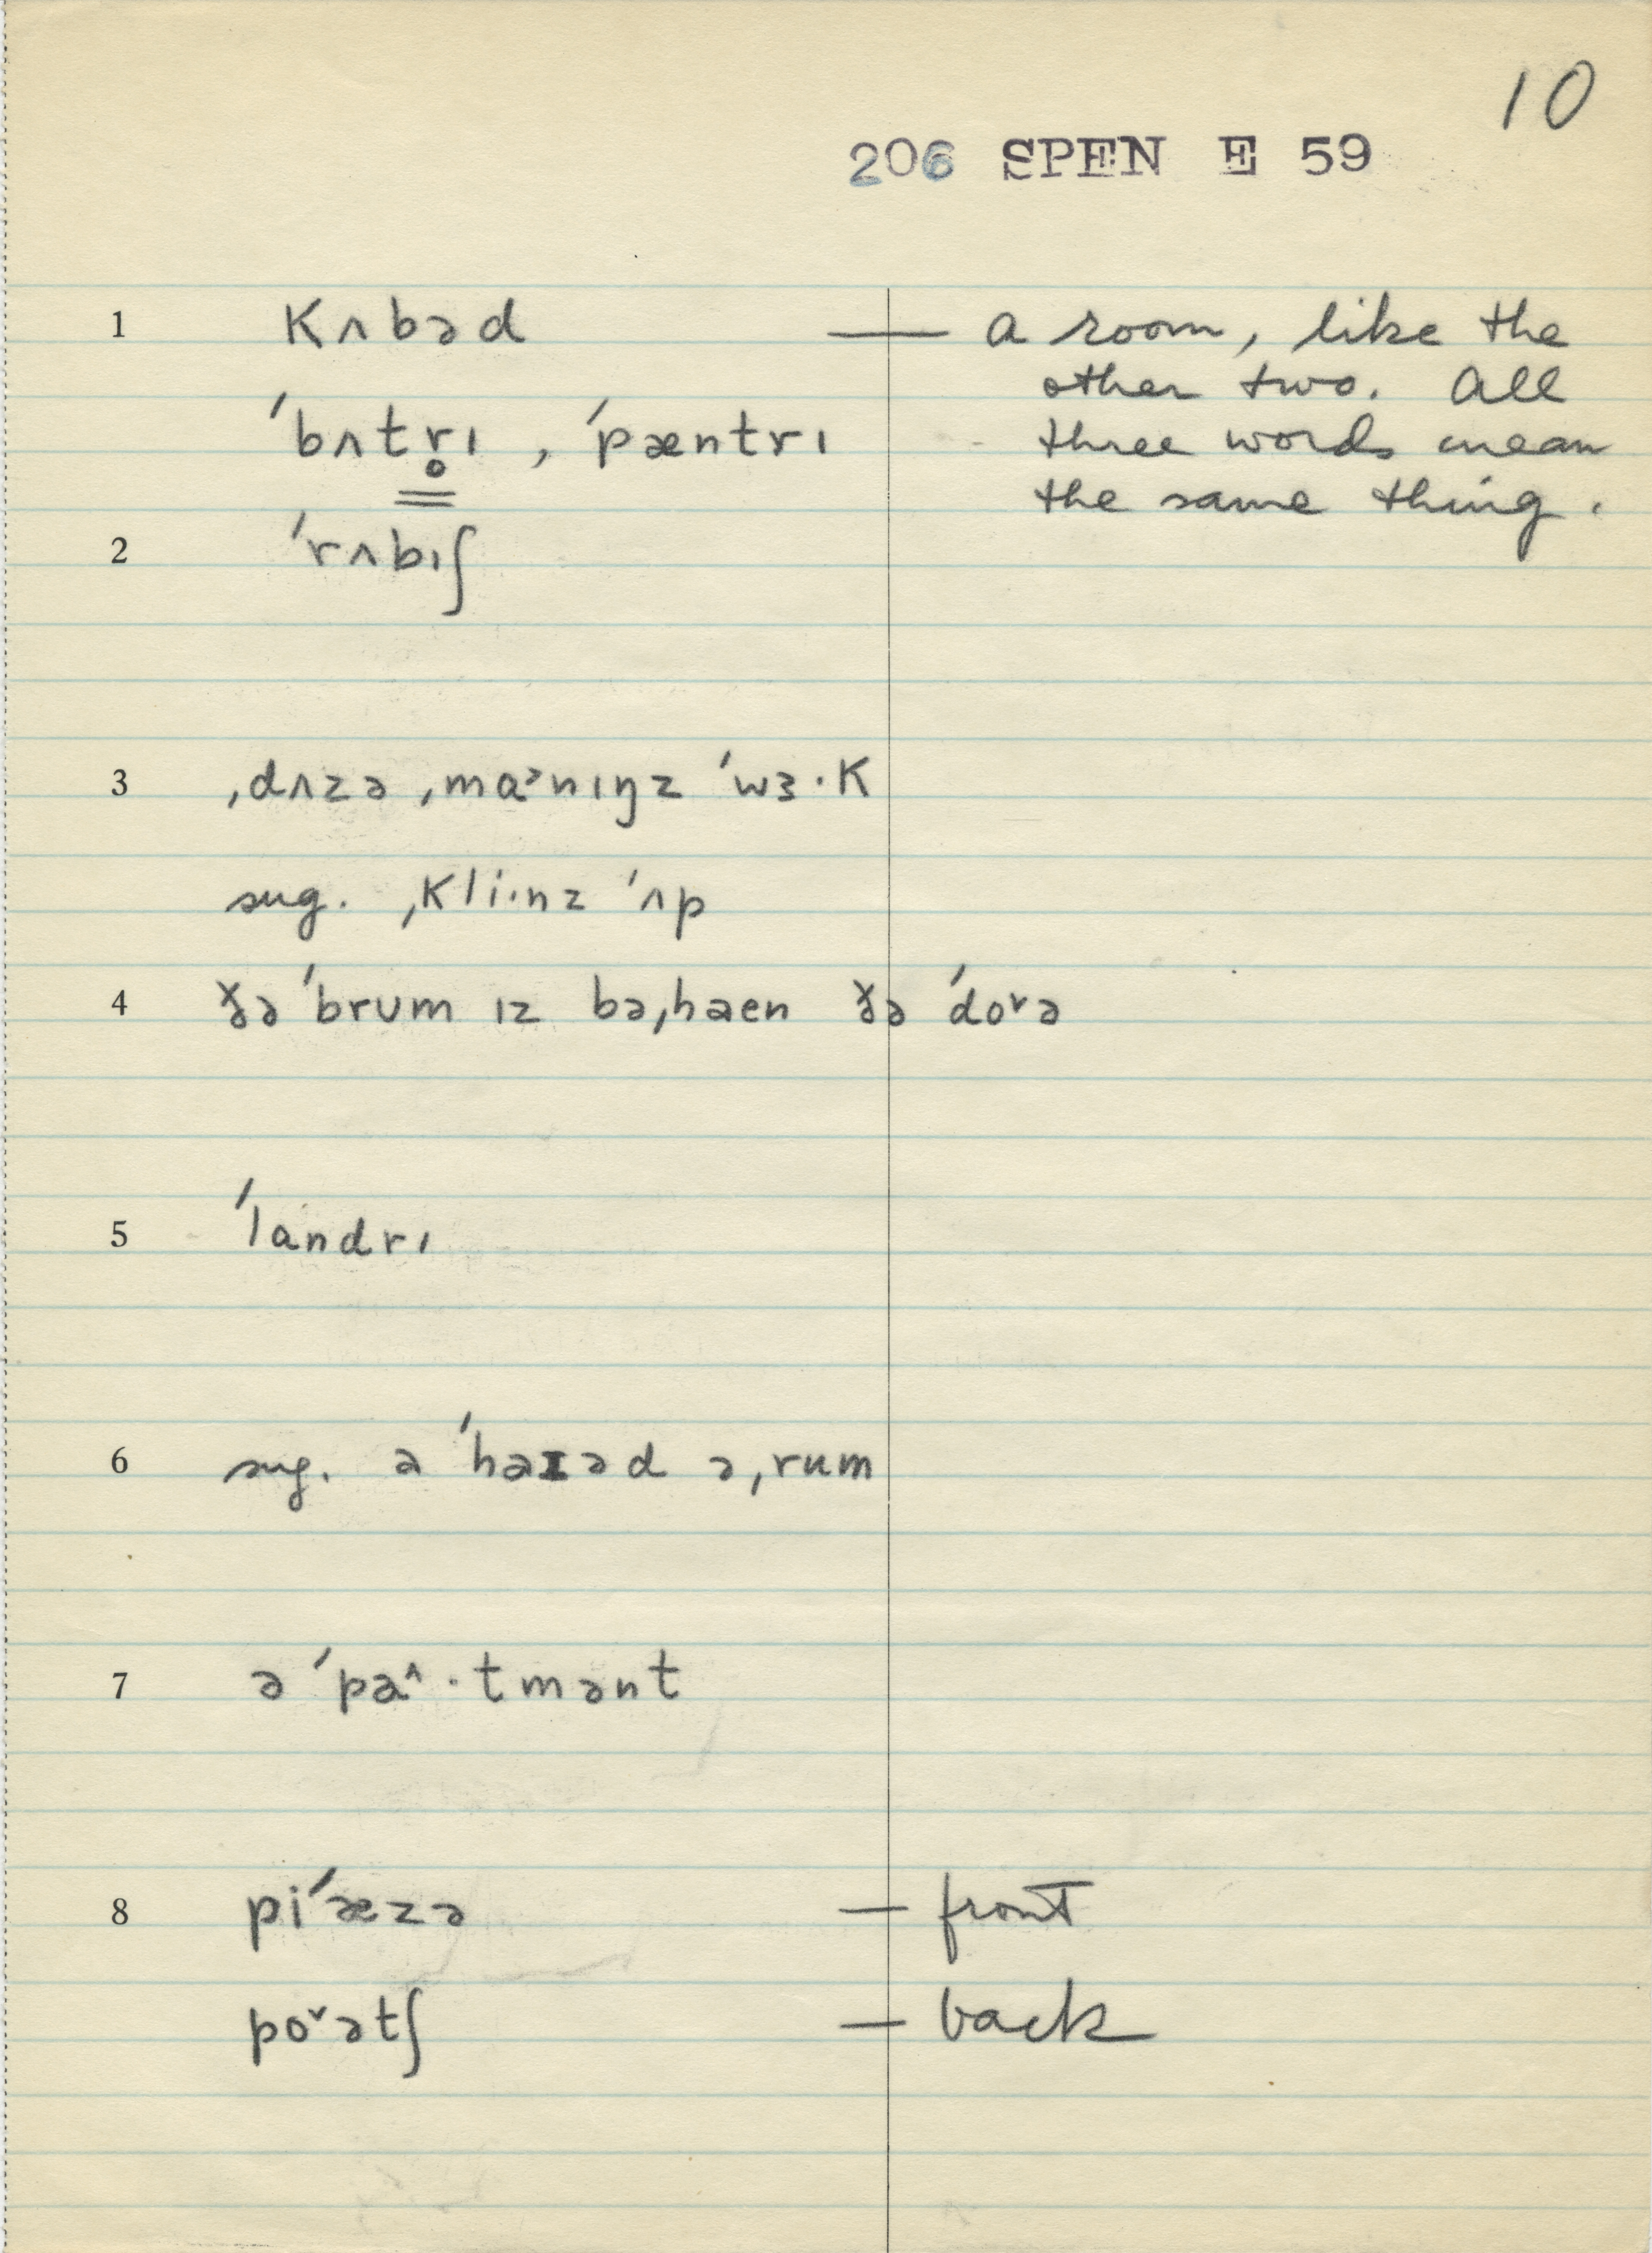 10
206 SPEN E 59
1 kʌbəd — a room, like the
other two. All
ˈbʌtr̥ɪ , ˈpæntrɪ three words mean
the same thing.
2 ˈrʌbɪʃ
3 ˌdʌzə ˌmɑᵊnɪŋz ˈwɜ·k
sug. ˌkli·nz ˈʌp
4 ðə ˈbrum ɪz bəˌhaen ðə ˈdo˅ə
5 ˈlandrɪ
6 sug. ə ˈhaɪəd əˌrum
7 ə ˈpa^·tmənt
8 piˈæzə — front
po˅ətʃ — back